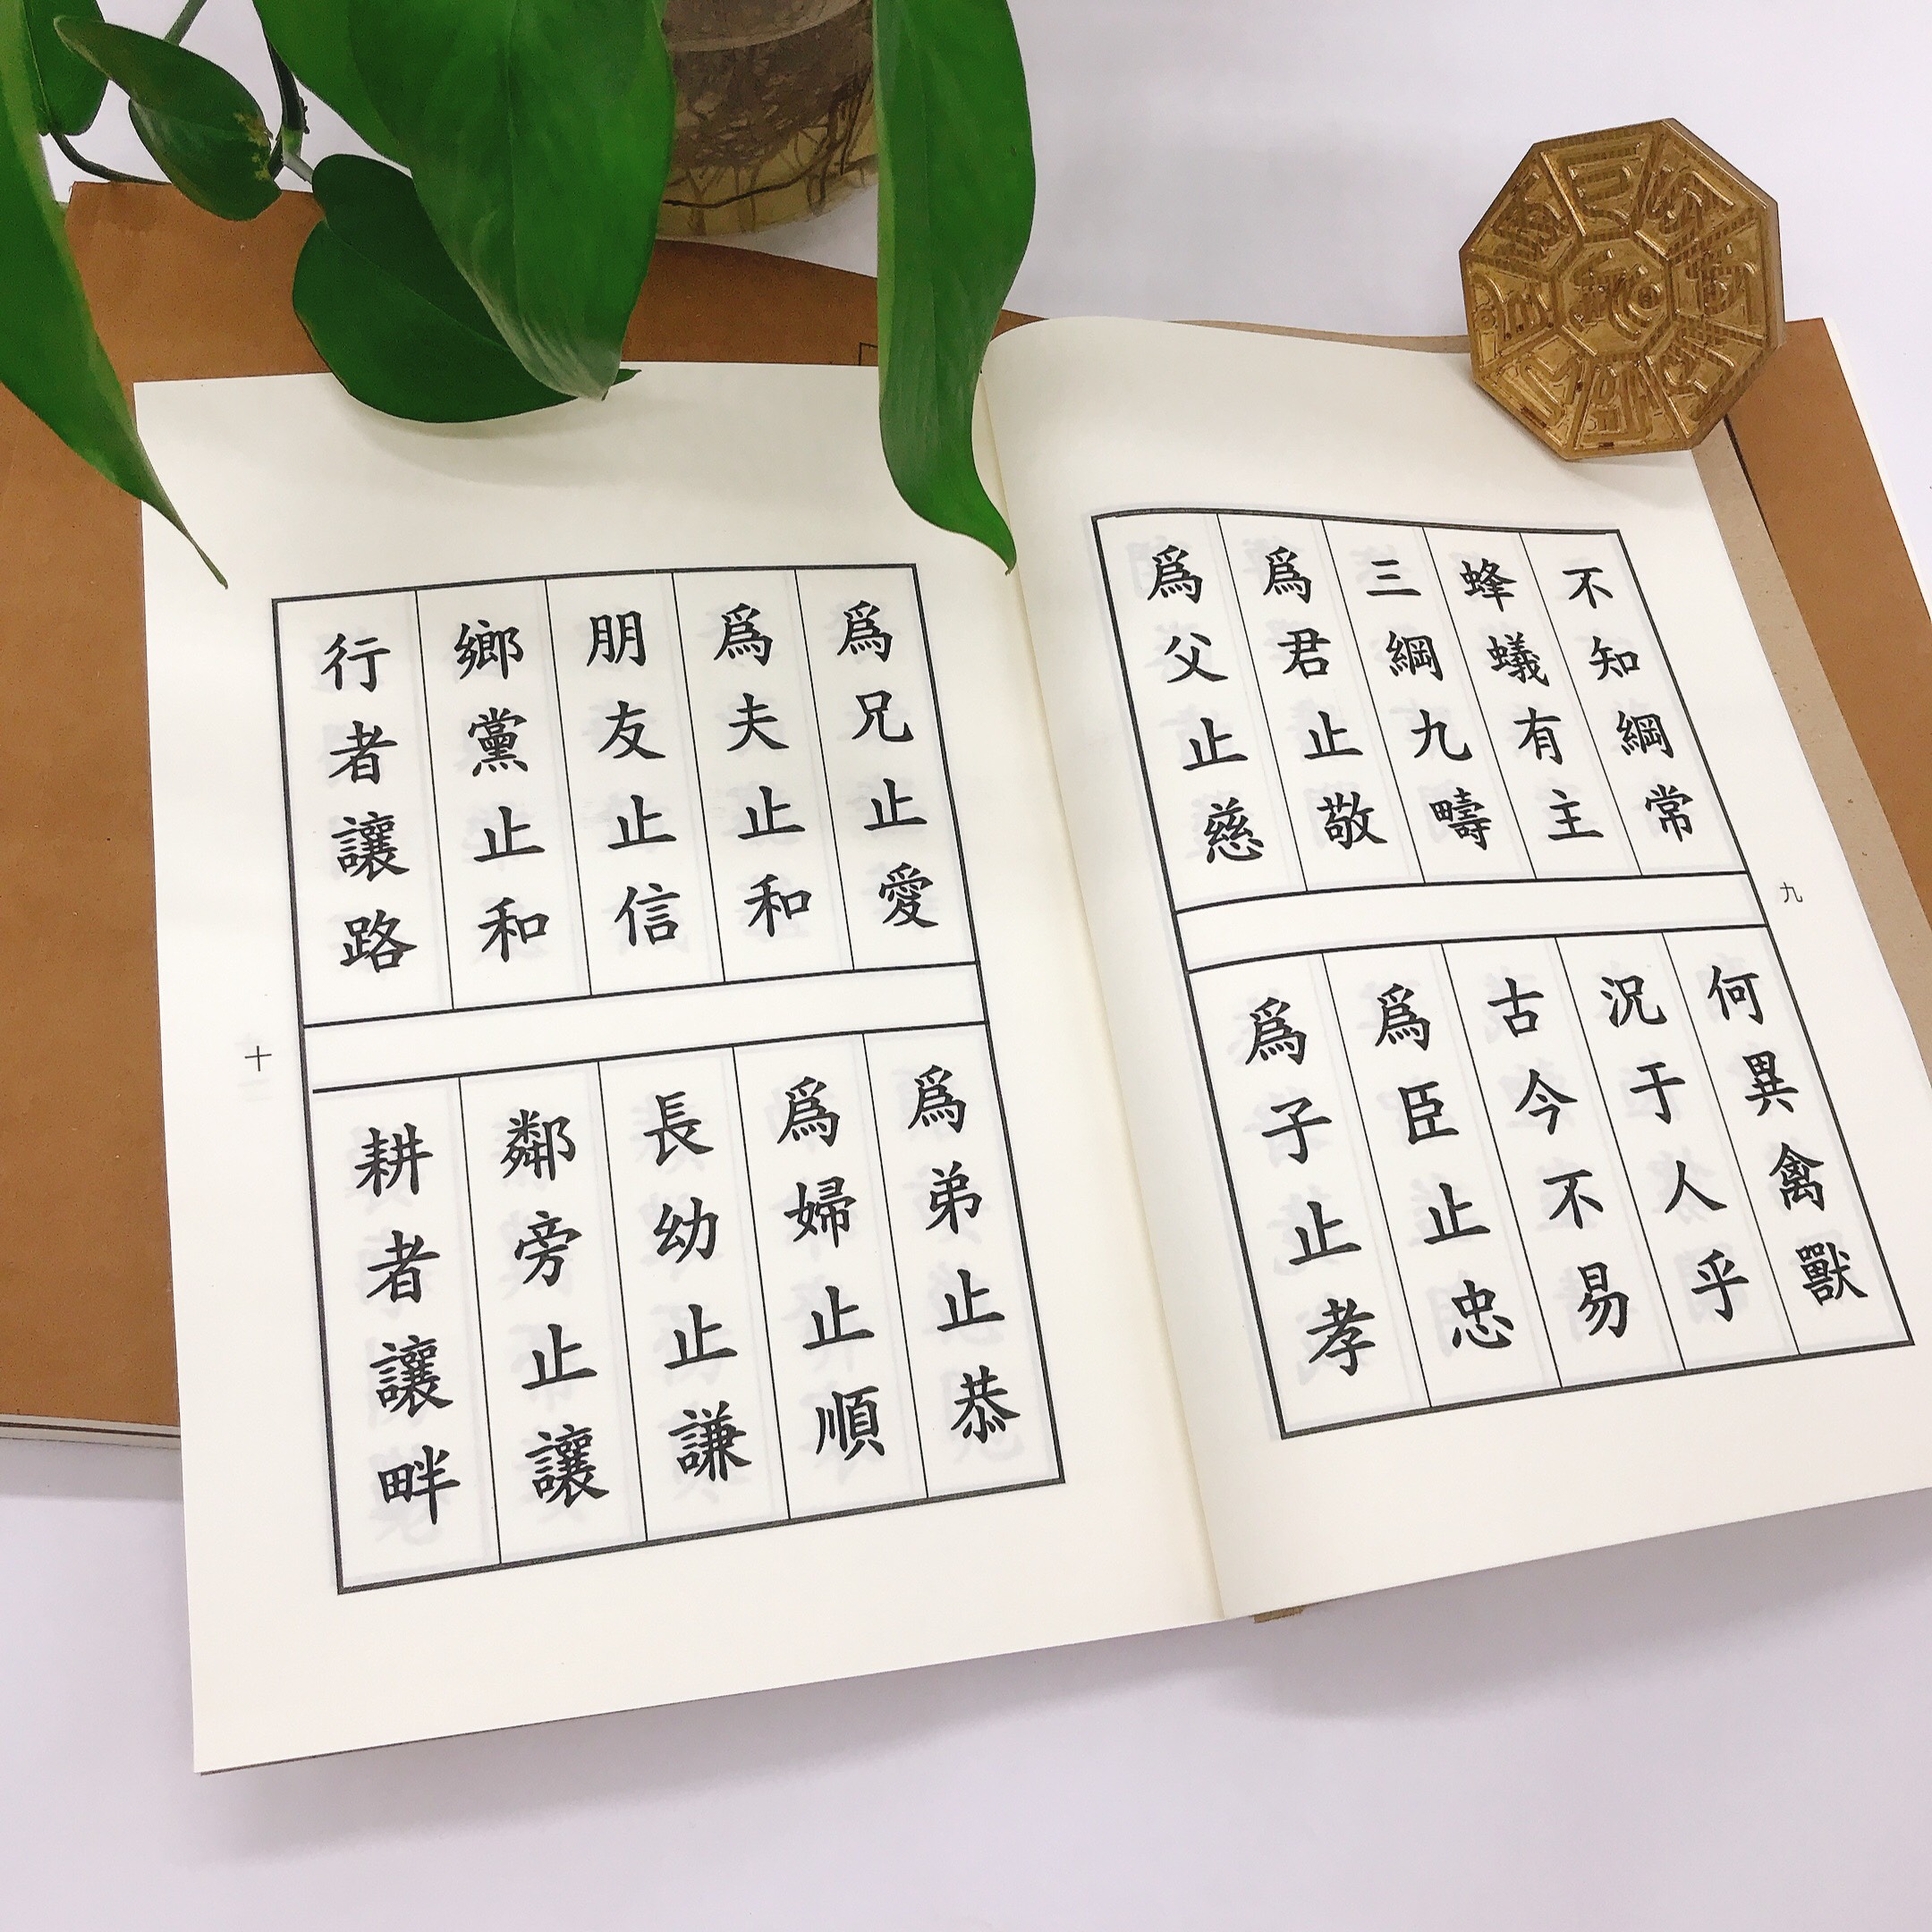 不知綱常
何異禽獸
蜂蟻有主
況于人乎
三綱九疇
古今不易
爲君止敬
爲臣止忠
爲父止慈
爲子止孝
九
爲兄止愛
爲弟止恭
爲夫止和
爲婦止順
朋友止信
長幼止謙
鄉黨止和
鄰旁止讓
行者讓路
耕者讓畔
十